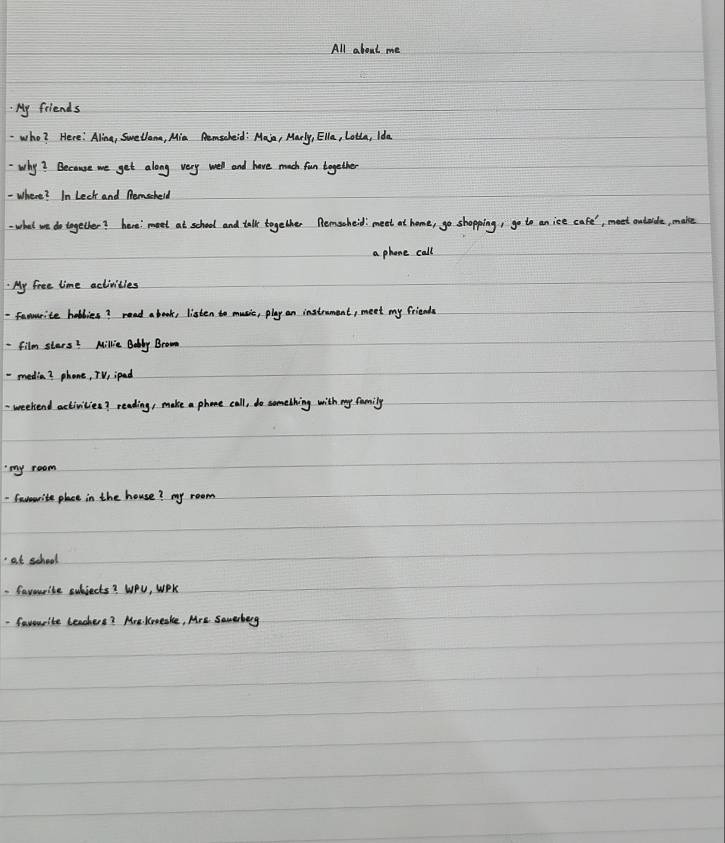 All about me
· My friends
- who? Here: Alina, Swetlana, Mia Remscheid: Maja, Marly, Ella, Lotta, Ida
- why? Because we get along very well and have much fun together
- where? In Leck and Remscheid
- what we do together? here: meet at school and talk together Remscheid: meet at home, go shopping, go to an ice café, meet outside, make
a phone call
· My free time activities
- favourite hobbies? read a book, listen to music, play an instrument, meet my friends
- film stars? Millie Bobby Brown
- media? phone, TV, ipad
- weekend activities? reading, make a phone call, do something with my family
· my room
- favourite place in the house? my room
· at school
- favourite subjects? WPU, WPK
- favourite teachers? Mrs. Kroeske, Mrs. Sauerberg